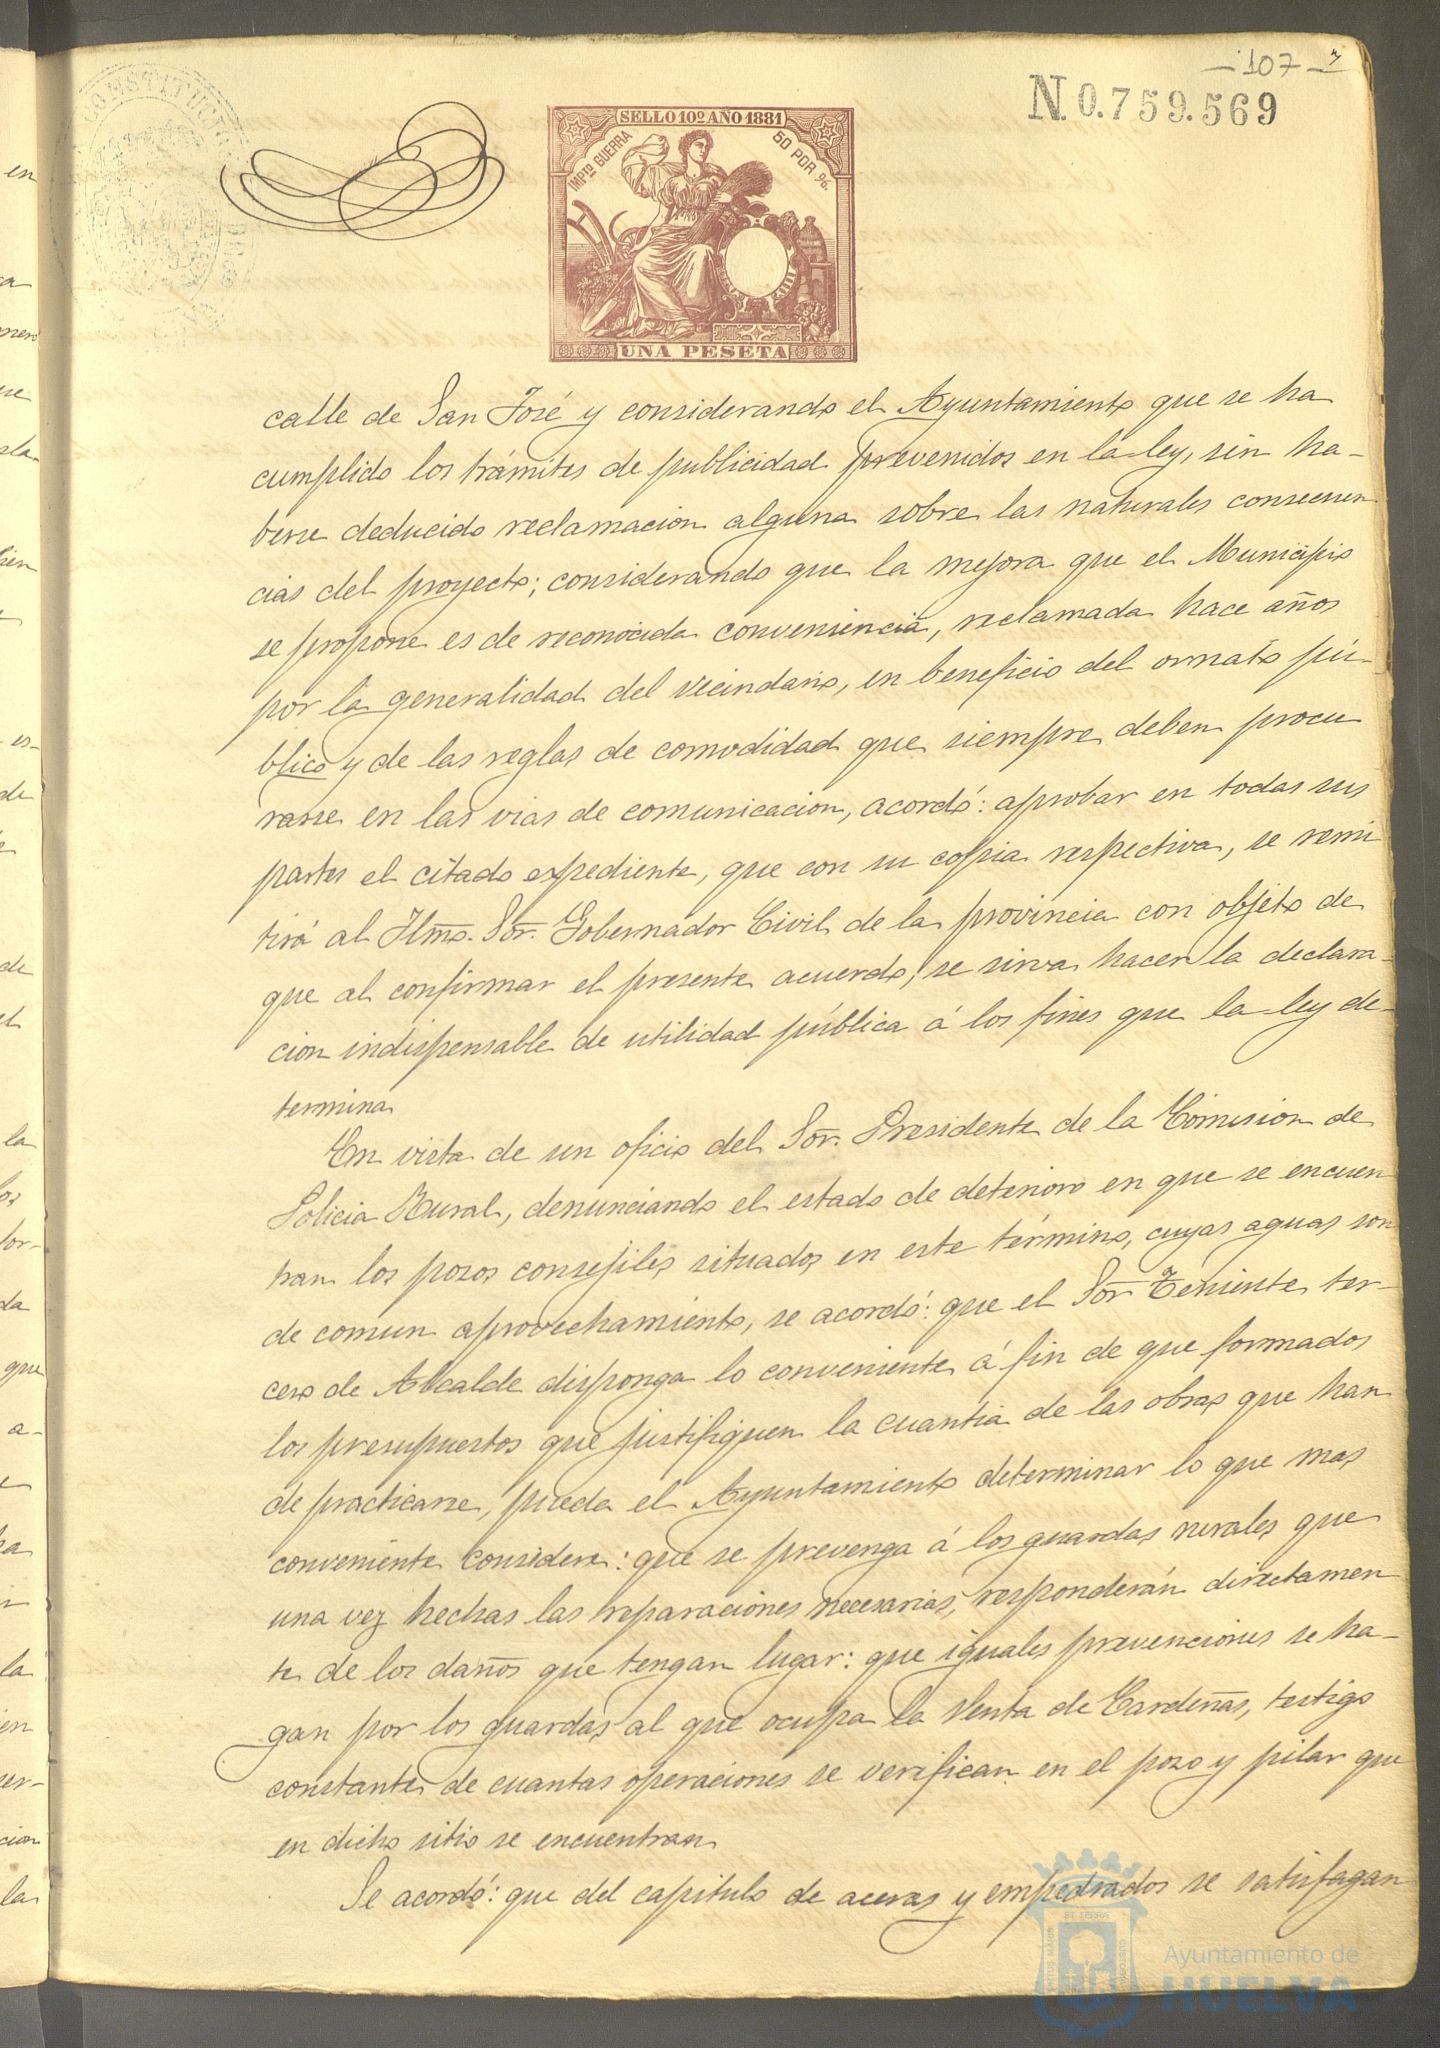 - 107 -
N.0.759.569
SELLO 10º AÑO 1881
IMPTO GUERRA
50 POR %
UNA PESETA
calle de San José y considerando el Ayuntamiento que se ha
cumplido los trámites de publicidad prevenidos en la ley, sin ha-
berse deducido reclamacion alguna sobre las naturales consecuen
cias del proyecto; considerando que la mejora que el Municipio
se propone es de reconocida conveniencia, reclamada hace años
por la generalidad del vecindario, en beneficio del ornato pú-
blico y de las reglas de comodidad que siempre deben procu
rarse en las vias de comunicacion, acordó: aprobar en todas sus
partes el citado expediente, que con su copia respectiva, se remi
tirá al Ilmo. Sor. Gobernador Civil de la provincia con objeto de
que al confirmar el presente acuerdo, se sirva hacer la declara-
cion indispensable de utilidad pública á los fines que la ley de-
termina
En vista de un oficio del Sor. Presidente de la Comision de
Policia Rural, denunciando el estado de deterioro en que se encuen
tran los pozos consejiles situados en este término, cuyas aguas son
de comun aprovechamiento, se acordó: que el Sor Teniente ter-
cero de Alcalde disponga lo conveniente á fin de que formados
los presupuestos que justifiquen la cuantia de las obras que han
de practicarse, pueda el Ayuntamiento determinar lo que mas
conveniente considere: que se prevenga á los guardas rurales que
una vez hechas las reparaciones necesarias, responderán directamen
te de los daños que tengan lugar: que iguales prevenciones se ha-
gan por los guardas al que ocupa la Venta de Cardeñas, testigo
constante de cuantas operaciones se verifican en el pozo y pilar que
en dicho sitio se encuentran
Se acordó: que del capitulo de aceras y empedrados se satisfagan
Ayuntamiento de
HUELVA